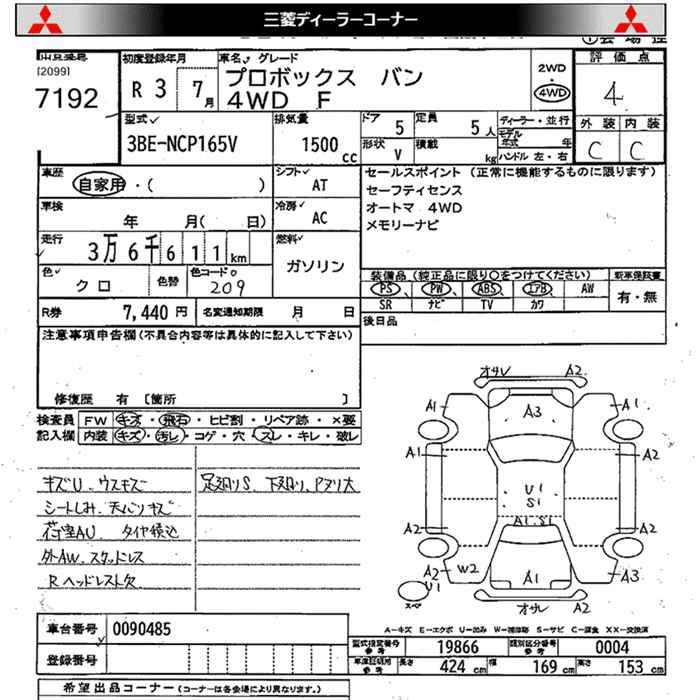 三菱ディーラーコーナー
[2099]
7192
初度登録年月
R 3 7月
車名✓ グレード
プロボックス バン
4WD F
2WD
4WD
評価点
4
外装 内装
C C
型式✓
3BE-NCP165V
排気量
1500 cc
ドア 5
定員 5人
形状 V
積載 kg
ディーラー・並行
モデル年式 年
ハンドル 左・右
車歴
自家用・( )
シフト✓
AT
セールスポイント (正常に機能するものに限ります)
セーフティセンス
オートマ 4WD
メモリーナビ
車検
年 月( 日)
冷房✓
AC
走行
3万6千611km
燃料✓
ガソリン
色✓
クロ
色替
色コードo
209
装備品(純正品に限り○をつけてください)
PS PW ABS エアB AW
SR ナビ TV カワ
新車保証書
有・無
R券 7,440円
名変通知期限 月 日
後日品
注意事項申告欄(不具合内容等は具体的に記入して下さい)
修復歴 有 [箇所 ]
検査員 FW キズ・飛石・ヒビ割・リペア跡・×要
記入欄 内装 キズ・汚レ・コゲ・穴・スレ・キレ・破レ
キズU、ウスキズ
シートしみ、天バリキズ
荷室AU タイヤ積込
外AW、スタッドレス
Rヘッドレスト欠
足廻りS、下廻り、Pヌリ大
オサレ A2
A1 A3 A1
A1 A2
U1
S1
A1, S1
A2 A2
W2 A1 A3
A2
U1
スペ
オサレ A2
A-キズ E-エクボ U-凹み W-補修跡 S-サビ C-腐食 XX-交換済
車台番号 0090485
登録番号
型式指定番号 参考 19866
類別区分番号 参考 0004
車庫証明用 参考 長さ 424 cm 幅 169 cm 高さ 153 cm
希望出品コーナー(コーナーは各会場により異なります。)